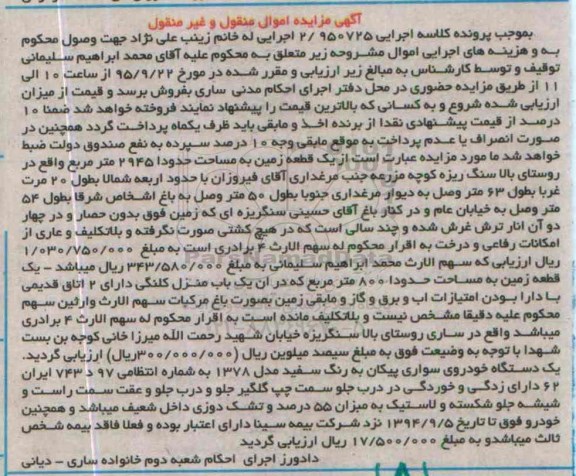 آگهی مزایده اموال منقول و غیر منقول
بموجب پرونده کلاسه اجرایی ۹۵۰۷۲۵ /۲ اجرایی له خانم زینب علی نژاد جهت وصول محکوم
به و هزینه های اجرایی اموال مشروحه زیر متعلق به محکوم علیه آقای محمد ابراهیم سلیمانی
توقیف و توسط کارشناس به مبالغ زیر ارزیابی و مقرر شده در مورخ ۹۵/۹/۲۲ از ساعت ۱۰ الی
۱۱ از طریق مزایده حضوری در محل دفتر اجرای احکام مدنی ساری بفروش برسد و قیمت از میزان
ارزیابی شده شروع و به کسانی که بالاترین قیمت را پیشنهاد نمایند فروخته خواهد شد ضمنا ۱۰
درصد از قیمت پیشنهادی نقدا از برنده اخذ و مابقی باید ظرف یکماه پرداخت گردد همچنین در
صورت انصراف یا عدم پرداخت به موقع مابقی وجه ۱۰ درصد سپرده به نفع صندوق دولت ضبط
خواهد شد ما مورد مزایده عبارت است از یک قطعه زمین به مساحت حدودا ۲۹۴۵ متر مربع واقع در
روستای بالا سنگ ریزه کوچه مزرعه جنب مرغداری آقای فیروزان با حدود اربعه شمالا بطول ۲۰ مرت
غربا بطول ۶۳ متر وصل به دیوار مرغداری جنوبا بطول ۵۰ متر وصل به باغ اشخاص شرقا بطول ۵۴
متر وصل به خیابان عام و در کنار باغ آقای حسینی سنگریزه ای که زمین فوق بدون حصار و در چهار
دو آن انار ترش غرش شده و چند سالی است که در هیچ کشتی صورت نگرفته و بلاتکلیف و عاری از
امکانات رفاعی و درخت به اقرار محکوم له سهم الارث ۴ برادری است به مبلغ ۱/۰۳۰/۷۵۰/۰۰۰
ریال ارزیابی که سهم الارث محمد ابراهیم سلیمانی به مبلغ ۳۴۳/۵۸۰/۰۰۰ ریال میباشد - یک
قطعه زمین به مساحت حدودا ۸۰۰ متر مربع که در آن یک باب منزل کلنگی دارای ۲ اتاق قدیمی
با دارا بودن امتیازات اب و برق و گاز و مابقی زمین بصورت باغ مرکبات سهم الارث وارثین سهم
محکوم علیه دقیقا مشخص نیست و بلاتکلیف مانده است به اقرار محکوم له سهم الارث ۴ برادری
میباشد واقع در ساری روستای بالا سنگریزه خیابان شهید رحمت الله میرزا خانی کوچه بن بست
شهدا با توجه به وضیعت فوق به مبلغ سیصد میلوین ریال (۳۰۰/۰۰۰/۰۰۰ریال) ارزیابی گردید.
یک دستگاه خودروی سواری پیکان به رنگ سفید مدل ۱۳۷۸ به شماره انتظامی ۹۷ د ۷۴۳ ایران
۶۲ دارای زدگی و خوردگی در درب جلو سمت چپ گلگیر جلو و درب جلو و عقت سمت راست و
شیشه جلو شکسته و لاستیک به میزان ۵۵ درصد و تشک دوزی داخل شعیف میباشد و همچنین
خودرو فوق تا تاریخ ۱۳۹۴/۹/۵ نزد شرکت بیمه سینا دارای اعتبار بوده و فعلا فاقد بیمه شخص
ثالث میباشدو به مبلغ ۱۷/۵۰۰/۰۰۰ ریال ارزیابی گردید
دادورز اجرای احکام شعبه دوم خانواده ساری - دیانی